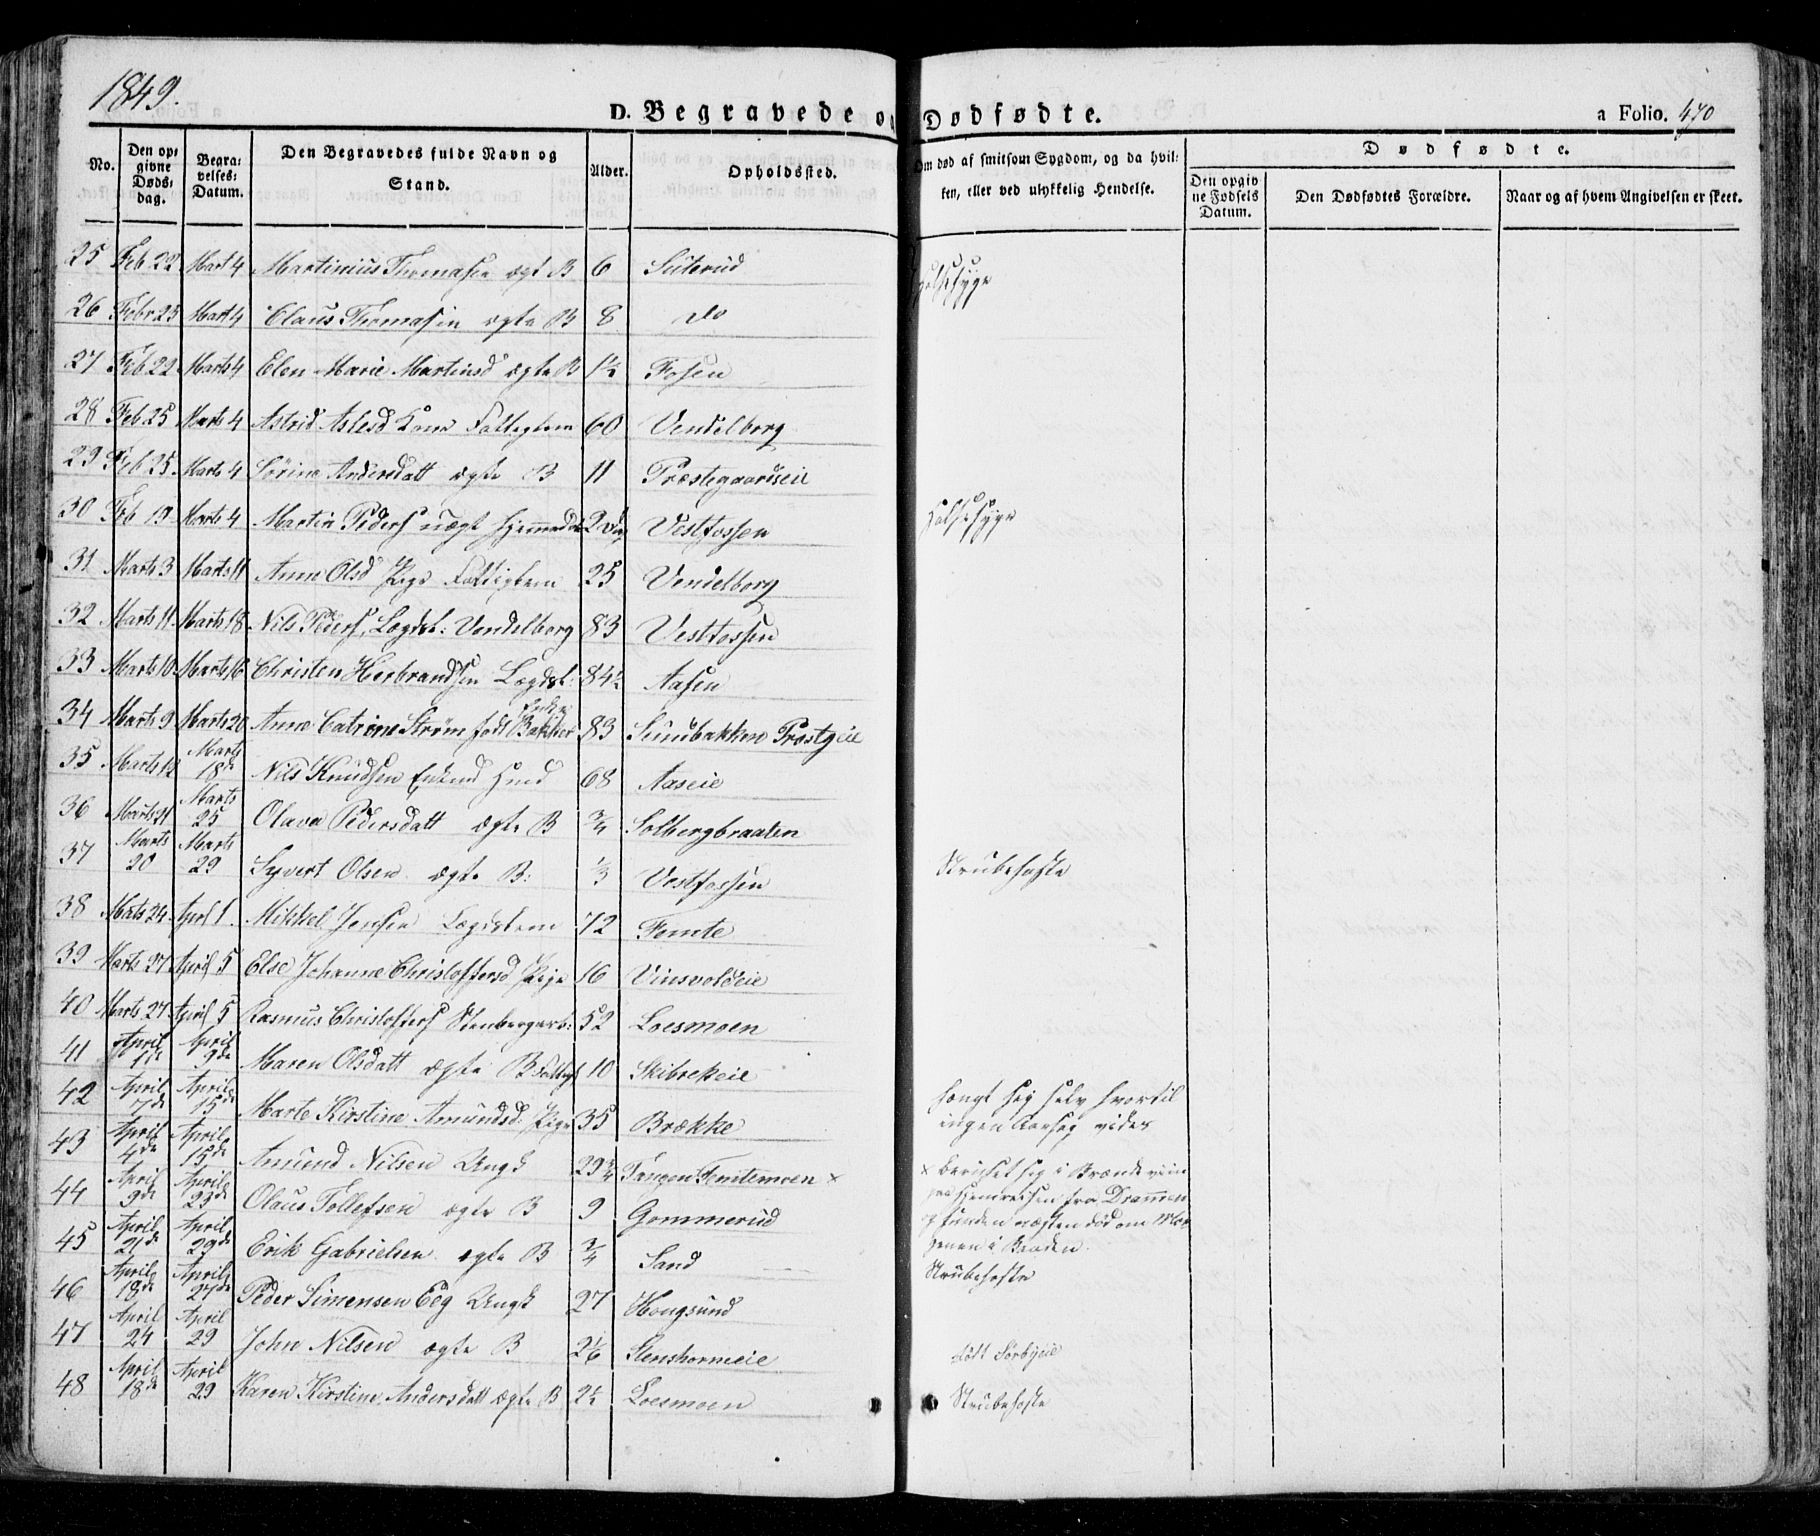 1849.
D. Begravede og Dødfødte.
a Folio. 470
No.
Den opgivne Dødsdag.
Begravelses-Datum.
Den Begravedes fulde Navn og Stand.
Alder.
Opholdssted.
Om død af smitsom Sygdom, og da hvilken, eller ved ulykkelig Hendelse.
Dødfødte.
Den opgivne Fødsels Datum.
Den Dødfødtes Forældre.
Naar og af hvem Angivelsen er skeet.
25 Feb 22 Mart 4 Martinius Thomasen ægte B 6 Halssyge
26 Febr 23 Mart 4 Claus Thomasen ægte B 8 do
27 Feb 22 Marts 4 Elen Marie Martinsd ægte B 1½ Fosen
28 Feb 25 Marts 4 Astrid Aslesd Kone Fattiglem 60 Vendelborg
29 Feb 25 Marts 4 Sørine Andersdatt ægte B 11 Præstegaardseie
30 Feb 19 Marts 4 Martin Peders uægt 2 Vestfossen Halssyge
31 Marts 3 Marts 11 Anne Olsd Pige Fattiglem 25 Vendelborg
32 Marts 11 Marts 18 Nils Peders. Lægdsl: Vendelborg 83 Vestfossen
33 Marts 10 Marts 16 Christen Herbrandsen Lægdsl: 84½ Aasen
34 Marts 9 Marts 20 Anne Catrine Strøm født Bakker Enke 83 Sundbakken Præstgeie
35 Marts 12 Marts 18de Nils Knudsen Enkemd 68 Aaseie
36 Marts 21 Marts 25 Olava Pedersdatt ægte B ¾ Solbergbraaten
37 Marts 20 Marts 29 Syvert Olsen ægte B: ⅓ Vestfossen Strubehoste
38 Marts 24 April 1. Mikkel Jensen Lægdslem 72 Fomte
39 Marts 27 April 5 Else Johanne Christoffersd Pige 16 Vinsvoldeie
40 Marts 27 April 5 Rasmus Christoffers Stenbergarb: 52 Loesmoen
41 April 1de April 9de Maren Olsdatt ægte B Fattigl 10 Skibrekeie
42 April 7de April 15de Marte Kirstine Amundsd: Pige 35 Brække
hængt sig selv hvortil
ingen Aarsag vides
43 April 4de April 15de Amund Nilsen Ungk 29¾ Tangen Fomtemoen ×
× beruset sig i Brændeviin
paa Hjemreisen fra Drammen
og funden næsten død om Mor
genen i Baaden.
44 April 9de April 23de Olaus Tollefsen ægte B 9 Gommerud
45 April 21de April 29de Erik Gabrielsen ægte B ¾ Sand Strubehoste
46 April 18de April 27de Peder Simensen Eeg Ungk 27 Hougsund
47 April 24 April 29 John Nilsen ægte B 2⅙ Stenshorneie født Sørbyeie
48 April 18de April 29 Karen Kirstine Andersdatt ægte B 2½ Loesmoen Strubehoste